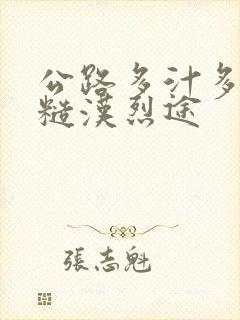 公路多汁多
糙漢烈途
張志魁